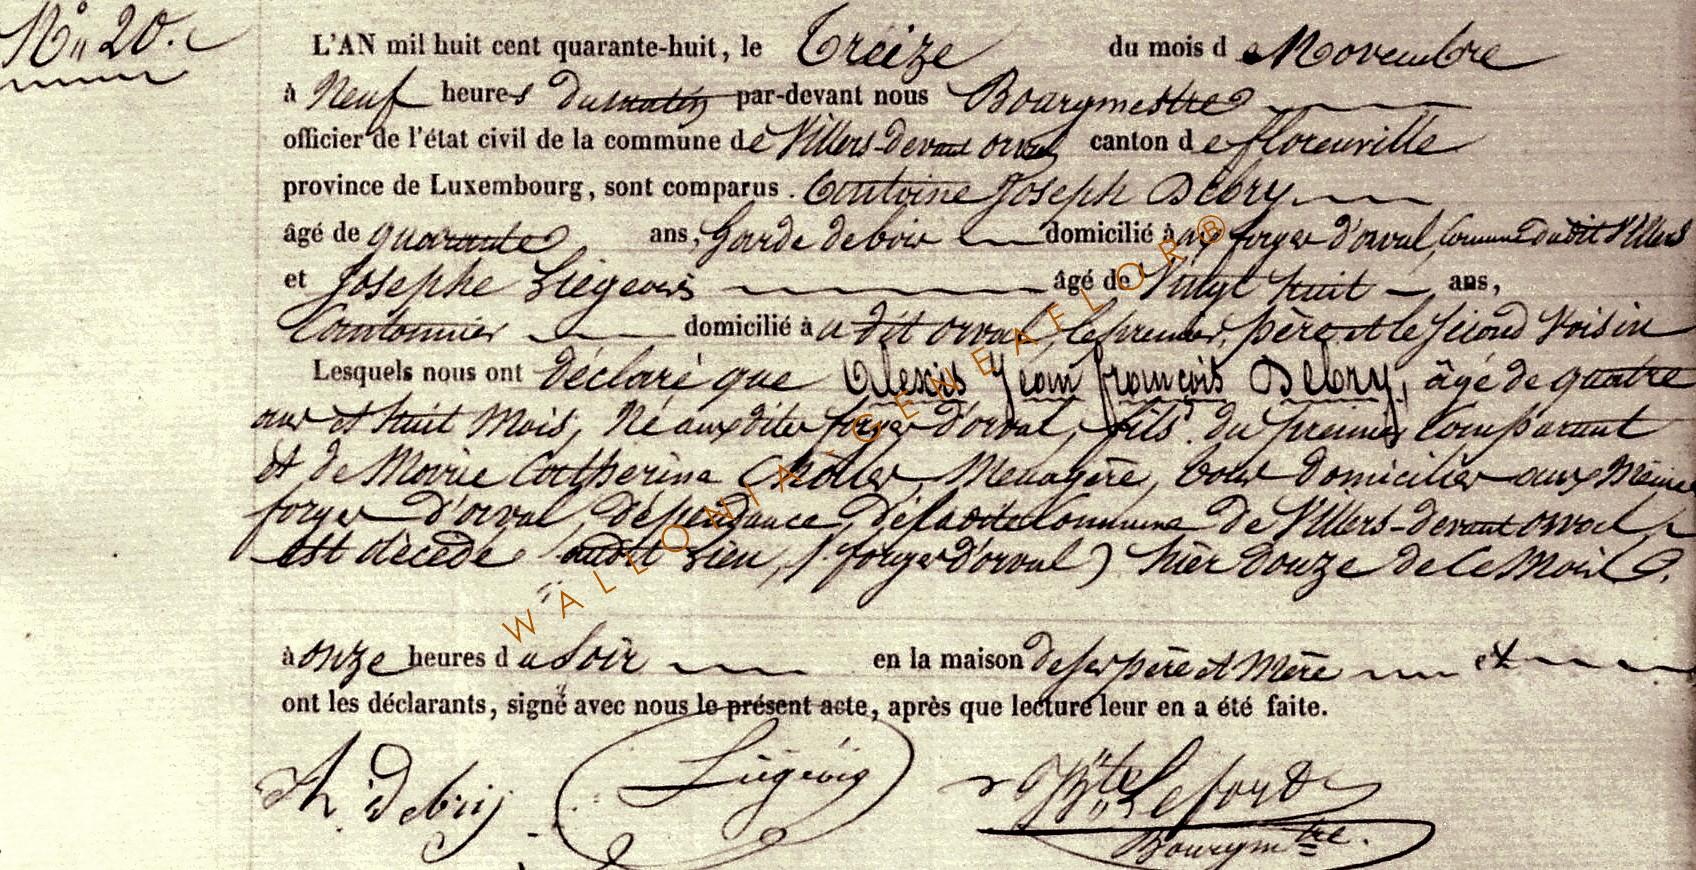 N° 20.
L'AN mil huit cent quarante-huit, le Treize du mois de Novembre
à Neuf heures du matin par-devant nous Bourgmestre
officier de l'état civil de la commune de Villers-devant orval canton de florenville
province de Luxembourg, sont comparus Antoine Joseph Debry
âgé de quarante ans, Garde de bois domicilié à aux forges d'orval, Commune dudit Villers
et Josephe Liégeois âgé de Vingt huit ans,
Cantonnier domicilié à a dit orval, le premier, père et le second Voisin
Lesquels nous ont déclaré que Alexis Jean françois Debry, âgé de quatre
ans et huit Mois, Né auxdites forges d'orval, fils du premier Comparant
et de Marie Catherine Menagère, tous domiciliés aux Mêmes
forges d'orval, dépendance de la dite Commune de Villers-devant orval,
est décédé audit Lieu, (. forges d'orval) hier douze de Ce Mois
à onze heures du Soir en la maison de ses père et Mère et
ont les déclarants, signé avec nous le présent acte, après que lecture leur en a été faite.
debrij Liégeois Lefort
Bourgmtre.
WALLONIA - GENEAFLOR®